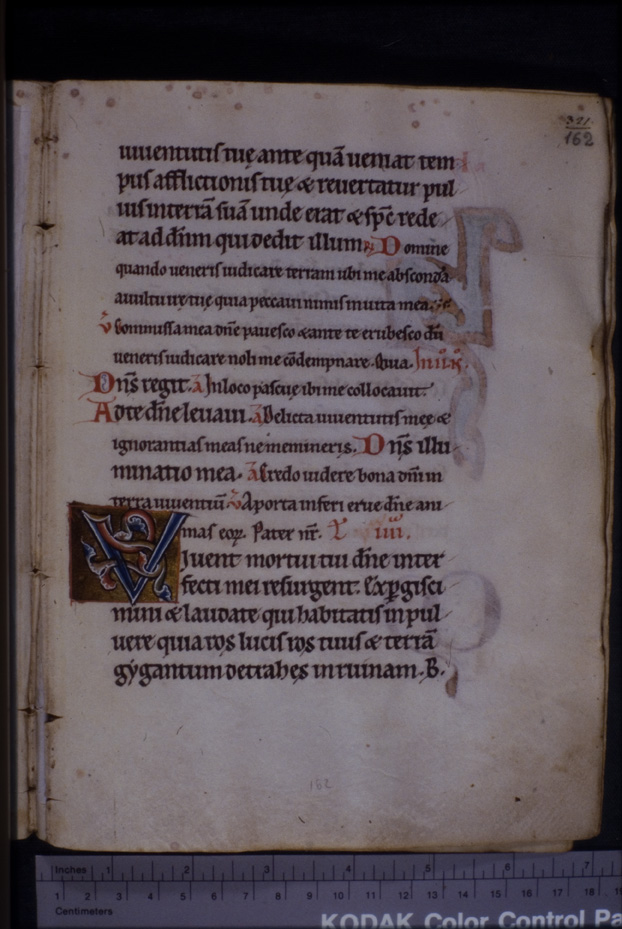 321
162
iuuentutis tuę ante quā ueniat tem
pus afflictionis tuę & reuertatur pul
uis in terrā suā unde erat & spc̄ rede
at ad dn̄m qui dedit illum. R̵ Domine
quando ueneris iudicare terram ubi me abscondā
a uultu irę tuę quia peccaui nimis in uita mea.
v̄ Commissa mea dn̄e pauesco & ante te erubesco dū
ueneris iudicare noli me cōdempnare. Quia. In
Dn̄s regit. A In loco pascuę ibi me collocauit.
Ad te dn̄e leuaui. A Delicta iuuentutis meę &
ignorantias meas ne memineris. Dn̄s illu
minatio mea. A Credo uidere bona dn̄i in
terra uiuentiū v̄ A porta inferi erue dn̄e ani
mas eoꝝ. Pater nr̄. L iiii.
Viuent mortui tui dn̄e inter
fecti mei resurgent. Exꝑgisci
mini & laudate qui habitatis in pul
uere quia ros lucis ros tuus & terrā
gygantum detrahęs in ruinam. B.
162
Inches 1 2 3 4 5 6 7
1 2 3 4 5 6 7 8 9 10 11 12 13 14 15 16 17 18
Centimeters
KODAK Color Control Pa